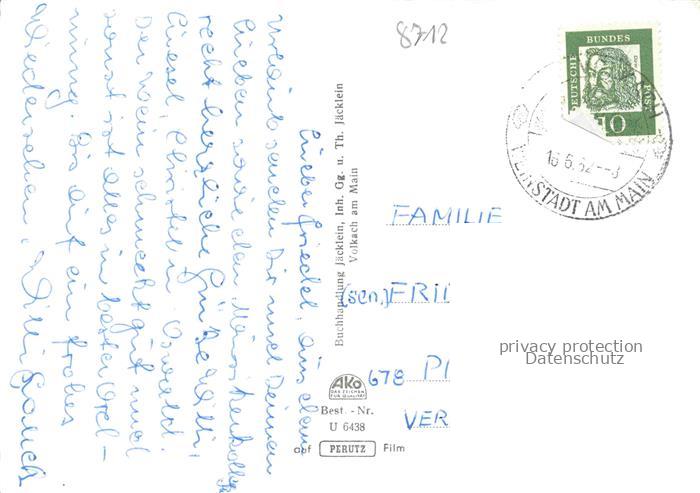 8712
DEUTSCHE BUNDES POST
10
VOLKACH
16.6.62--8
WEINSTADT AM MAIN
Lieber Friedel, aus dem
Urlaub senden Dir und Deinen
Lieben sowie den
recht herzliche Grüße Willi,
Liesel, Christel u. Oswald.
Der Wein schmeckt gut und
sonst ist alles in bester Ord-
nung. Bis auf ein frohes
Wiedersehen, Willi
Buchhandlung Jäcklein, Inh. Gg. u. Th. Jäcklein
Volkach am Main
FAMILIE
(sen.) FRI
678 PI
VER
privacy protection
Datenschutz
AKO
DAS ZEICHEN
FÜR QUALITÄT
Best. - Nr.
U 6438
auf PERUTZ Film